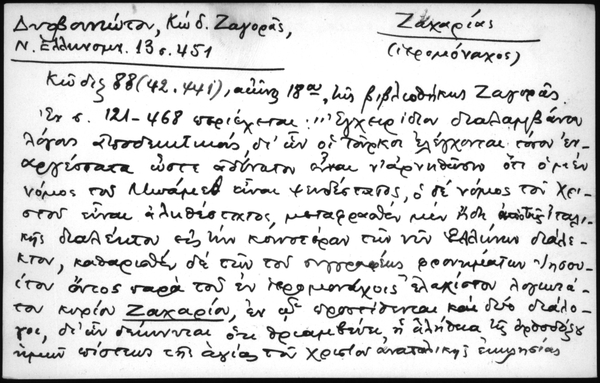 Δυοβουνιώτου, Κώδ. Ζαγορᾶς,
Ζαχαρίας
Ν. Ἑλληνομν. 13 σ. 451
(ἱερομόναχος)
Κῶδιξ 88 (42. 441), αἰῶνος 18ου, τῆς βιβλιοθήκης Ζαγορᾶς.
Ἐν σ. 121-468 περιέχεται: "Ἐγχειρίδιον διαλαμβάνον
λόγους ἀποδεικτικούς, δι' ὧν οἱ Τοῦρκοι ἐλέγχονται τόσον ἐν-
αργέστατα ὥστε ἀδύνατον εἶναι ν' ἀρνηθῶσιν ὅτι ὁ μὲν
νόμος τοῦ Μωάμεθ εἶναι ψευδέστατος, ὁ δὲ νόμος τοῦ Χρι-
στοῦ εἶναι ἀληθέστατος, μεταφρασθὲν μὲν ἤδη ἀπὸ τῆς ἰταλι-
κῆς διαλέκτου εἰς τὴν κοινοτέραν τῶν νῦν Ἑλλήνων διάλε-
κτον, καθαρισθὲν δὲ τῶν τοῦ συγγραφέως φρονημάτων Ἰησου-
ίτου ὄντος παρὰ τοῦ ἐν ἱερομονάχοις ἐλαχίστου λογιωτά-
του κυρίου Ζαχαρίου, ἐν ᾧ προστίθενται καὶ δύο διάλο-
γοι, δι' ὧν δείκνυται ὅτι θριαμβεύει ἡ ἀλήθεια τῆς ὀρθοδόξου
ἡμῶν πίστεως τῆς ἁγίας τοῦ Χριστοῦ ἀνατολικῆς ἐκκλησίας